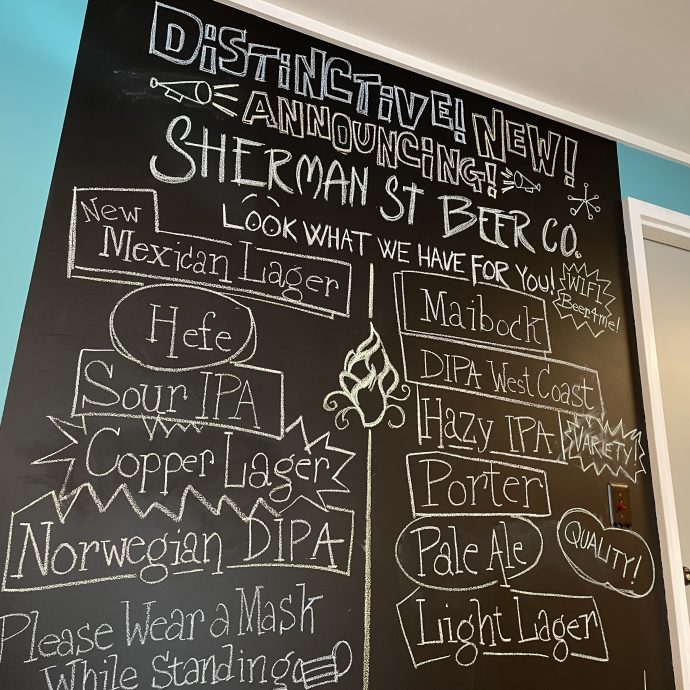 DISTINCTIVE! NEW!
ANNOUNCING!
SHERMAN ST BEER CO.
LOOK WHAT WE HAVE FOR YOU!
New
Mexican Lager
Hefe
Sour IPA
Copper Lager
Norwegian DIPA
Please Wear a Mask
While Standing
WIFI
Beer4me!
Maibock
DIPA West Coast
Hazy IPA
VARIETY
Porter
Pale Ale
QUALITY!
Light Lager